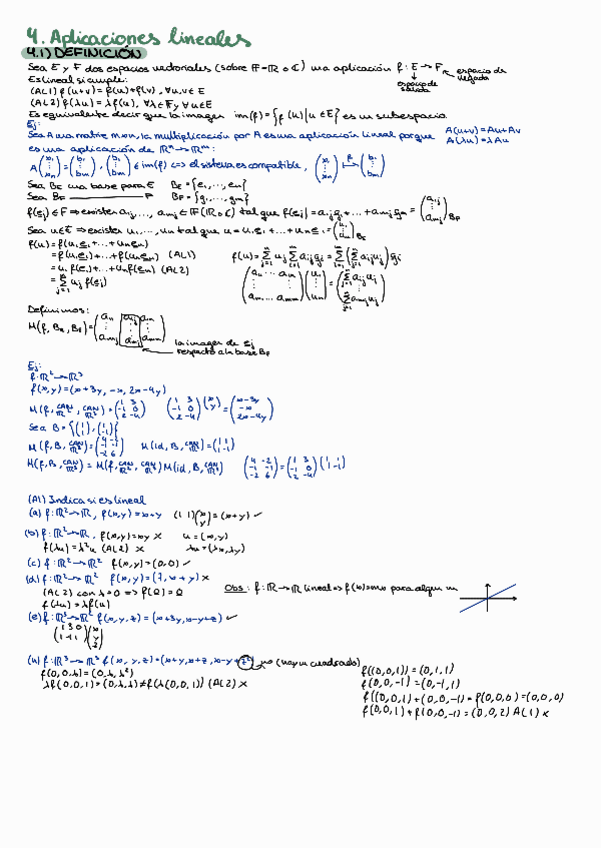 4. Aplicaciones lineales
4.1) DEFINICIÓN
Sea E y F dos espacios vectoriales (sobre F=R o C) una aplicación f: E → F
espacio de salida
espacio de llegada
Es lineal si cumple:
(AL1) f(u+v) = f(u)+f(v), ∀u,v ∈ E
(AL2) f(λu) = λf(u), ∀λ∈F y ∀u∈E
Es equivalente decir que la imagen im(f) = {f(u) | u ∈ E} es un subespacio
Ej:
Sea A una matriz m×n, la multiplicación por A es una aplicación lineal porque A(u+v) = Au+Av
A(λu) = λAu
es una aplicación de R^n → R^m:
A (x₁ ⋮ xn) = (b₁ ⋮ bm), (b₁ ⋮ bm) ∈ im(f) <=> el sistema es compatible, (x₁ ⋮ xn) → (b₁ ⋮ bm)
Sea BE una base para E BE = {e₁, ..., en}
Sea BF ——— F BF = {g₁, ..., gm}
f(ej) ∈ F => existen a₁j, ..., amj ∈ F (R o C) tal que f(ej) = a₁j g₁ + ... + amj gm = (a₁j ⋮ amj)BF
Sea u∈E => existen u₁, ..., un tal que u = u₁e₁ + ... + un en = (u₁ ⋮ un)BE
f(u) = f(u₁e₁ + ... + un en)
= f(u₁e₁) + ... + f(un en) (AL1)
= u₁ f(e₁) + ... + un f(en) (AL2)
= Σ uj f(ej)
f(u) = Σ uj Σ aij gi = Σ (Σ aij uj) gi
(a₁₁ ... a₁n ⋮ am₁ ... amn) (u₁ ⋮ un) = (Σ a₁j uj ⋮ Σ amj uj)
Definimos:
la imagen de ej
respecto a la base BF
Ej:
f: R² → R³
f(x,y) = (x+3y, -x, 2x-4y)
Sea B =
(A1) Indica si es lineal
(a) f: R² → R, f(x,y) = x+y (1 1)(x y) = (x+y) ✓
(b) f: R² → R, f(x,y) = xy × u = (x,y)
f(λu) = λ²u (AL2) × λu = (λx, λy)
(c) f: R² → R² f(x,y) = (0,0) ✓
(d) f: R² → R² f(x,y) = (7, x+y) ×
(AL2) con λ=0 => f(0) = 0
f(λu) = λf(u)
Obs: f: R → R lineal => f(x) = mx para algún m
(e) f: R³ → R² f(x,y,z) = (x+3y, x-y+z) ✓
(1 3 0 1 -1 1)(x y z)
(h) f: R³ → R³ f(x,y,z) = (x+y, x+z, x-y+z²) no (hay un cuadrado)
f(0,0,λ) = (0,λ,λ²)
λf(0,0,1) = (0,λ,λ) ≠ f(λ(0,0,1)) (AL2) ×
f((0,0,1)) = (0,1,1)
f(0,0,-1) = (0,-1,1)
f((0,0,1)+(0,0,-1)) = f(0,0,0) = (0,0,0)
f(0,0,1) + f(0,0,-1) = (0,0,2) A(1) ×